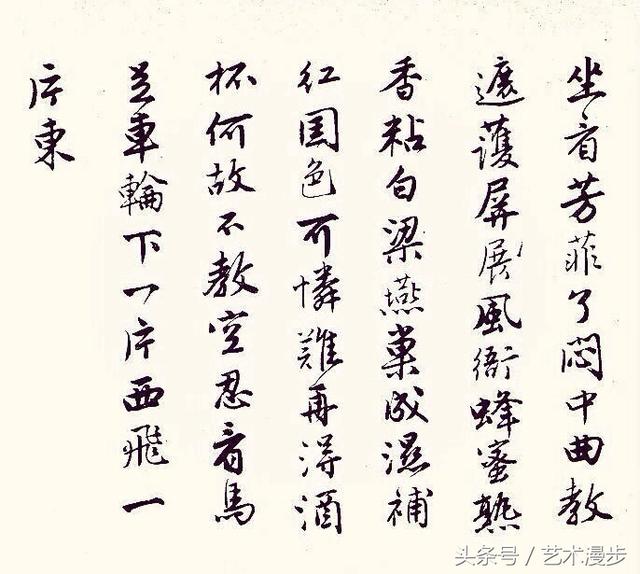 坐看芳菲了悶中曲教
遮護屏展風衙蜂蜜熟
香粘白梁燕巢成濕補
紅国色可憐難再得酒
杯何故不教空忍看馬
足車輪下一片西飛一
片東
头条号 / 艺术漫步